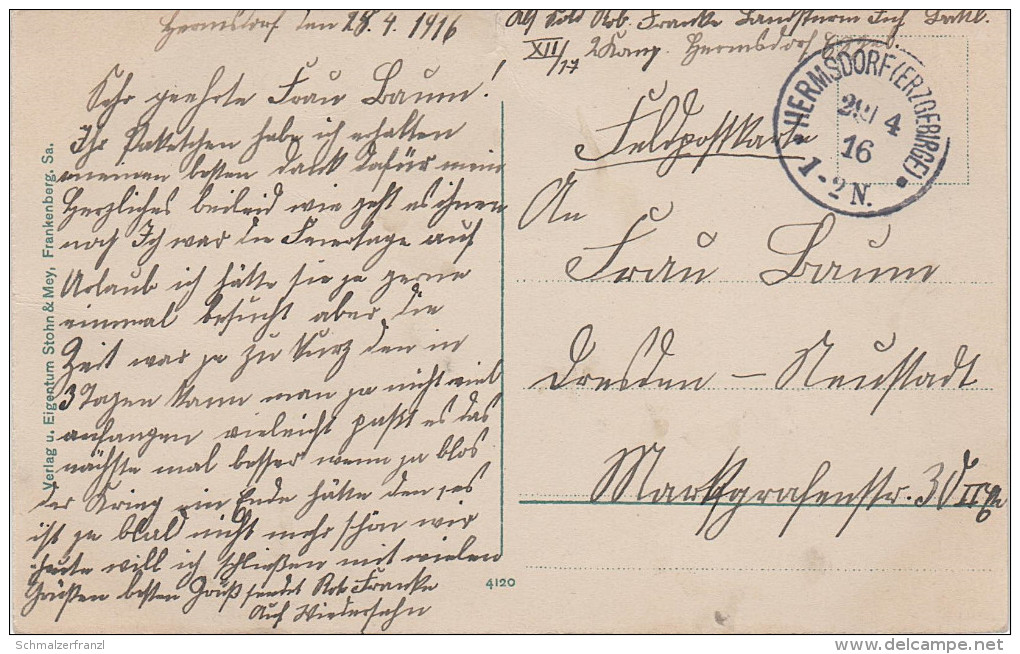 Hermsdorf den 28.4.1916
Abs Sold Rob. Franke Landsturm Inf
XII/17 2 Komp Hermsdorf Erzgeb.
Sehr geehrte Frau Baum!
Ihr Paketchen habe ich erhalten
meinen besten dank dafür mein
Herzliches beileid wie geht es ihnen
noch Ich war die Feiertage auf
Urlaub ich hätte sie ja gerne
einmal besucht aber die
Zeit war ja zu kurz den in
3 Tagen kann man ja nicht viel
anfangen vieleicht paßt es das
nächste mal besser wenn ja blos
der Krieg ein Ende hätte den es
ist ja bald nicht mehr schön wir
heute will ich schließen mit vielen
Grüßen besten Gruß sendet Rob Franke
Auf Wiedersehn
Verlag u. Eigentum Stohn & Mey, Frankenberg. Sa.
4120
Feldpostkarte
HERMSDORF (ERZGEBIRGE)
29 4
16
1-2 N.
An
Frau Baum
Dresden – Neustadt
Markgrafenstr. 30 II
Schmalzerfranzl
delcampe.net